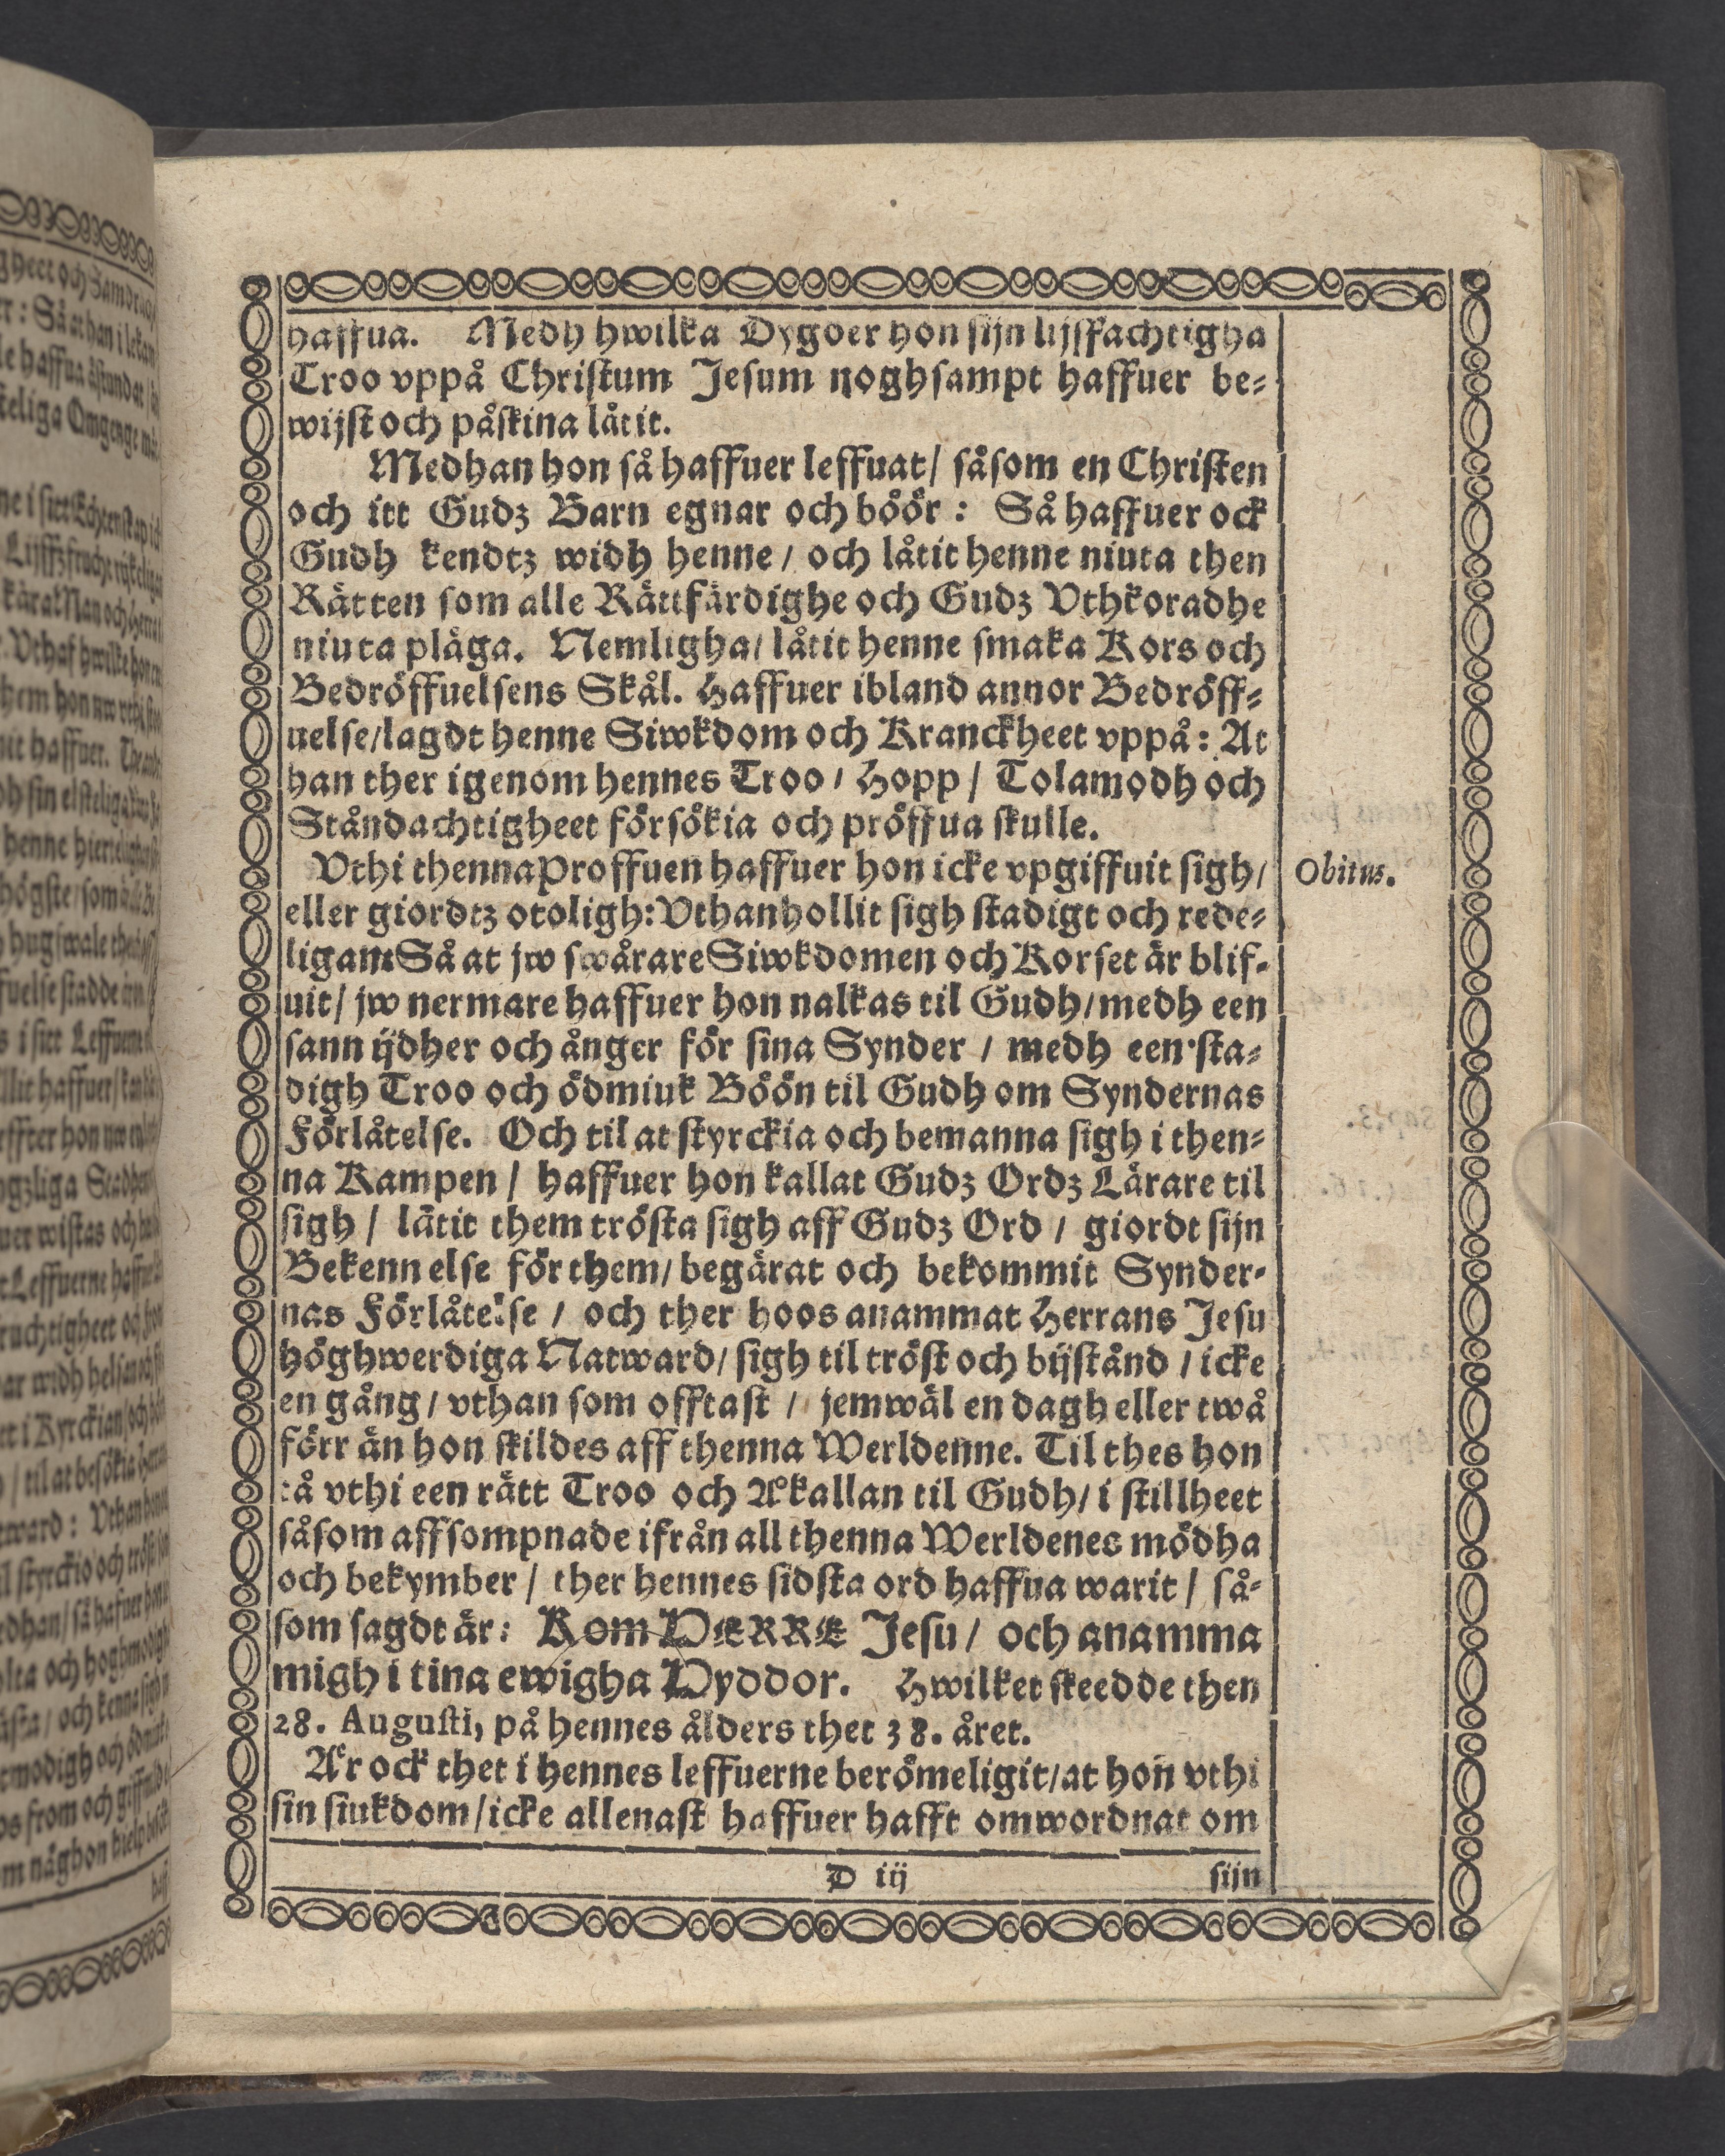 haffua. Medh hwilka Dygder hon sijn lijffachtigha
Troo vppå Christum Jesum noghsampt haffuer be-
wijst och påskina låtit.
Medhan hon så haffuer leffuat/ såsom en Christen
och itt Gudz Barn egnar och böör: Så haffuer ock
Gudh kendtz widh henne/ och låtit henne niuta then
Rätten som alle Rättfärdighe och Gudz Vthkoradhe
niuta plåga. Nemligha/ låtit henne smaka Kors och
Bedröffuelsens Skål. Haffuer ibland annor Bedröff-
uelse/lagdt henne Siwkdom och Kranckheet vppå: At
han ther igenom hennes Troo/ Hopp/ Tolamodh och
Ståndachtigheet försökia och pröffua skulle.
Vthi thenna Proffuen haffuer hon icke vpgiffuit sigh/
Obitus.
eller giordtz otoligh: Vthan hollit sigh stadigt och rede-
ligant Så at jw swårare Siwkdomen och Korset är blif-
uit/ jw nermare haffuer hon nalkas til Gudh/ medh een
sann ijdher och ånger för sina Synder/ medh een sta-
digh Troo och ödmiuk Böön til Gudh om Syndernas
Förlåtelse. Och til at styrckia och bemanna sigh i then-
na Kampen/ haffuer hon kallat Gudz Ordz Lärare til
sigh/ låtit them trösta sigh aff Gudz Ord/ giordt sijn
Bekennelse för them/ begärat och bekommit Synder-
nas Förlåtelse/ och ther hoos anammat Herrans Jesu
höghwerdiga Natward/ sigh til tröst och bijstånd/ icke
en gång/ vthan som offtast/ jemwäl en dagh eller twå
förr än hon skildes aff thenna Werldenne. Til thes hon
tå vthi een rätt Troo och Åkallan til Gudh/ i stillheet
såsom affsompnade ifrån all thenna Werldenes mödha
och bekymber/ ther hennes sidsta ord haffua warit/ så-
som sagdt är: Kom HERRE Jesu/ och anamma
migh i tina ewigha Hyddor. Hwilket skeedde then
28. Augusti, på hennes ålders thet 38. året.
Är ock thet i hennes leffuerne berömeligit/ at hon vthi
sin siukdom/ icke allenast haffuer hafft omwordnat om
D iij
sijn